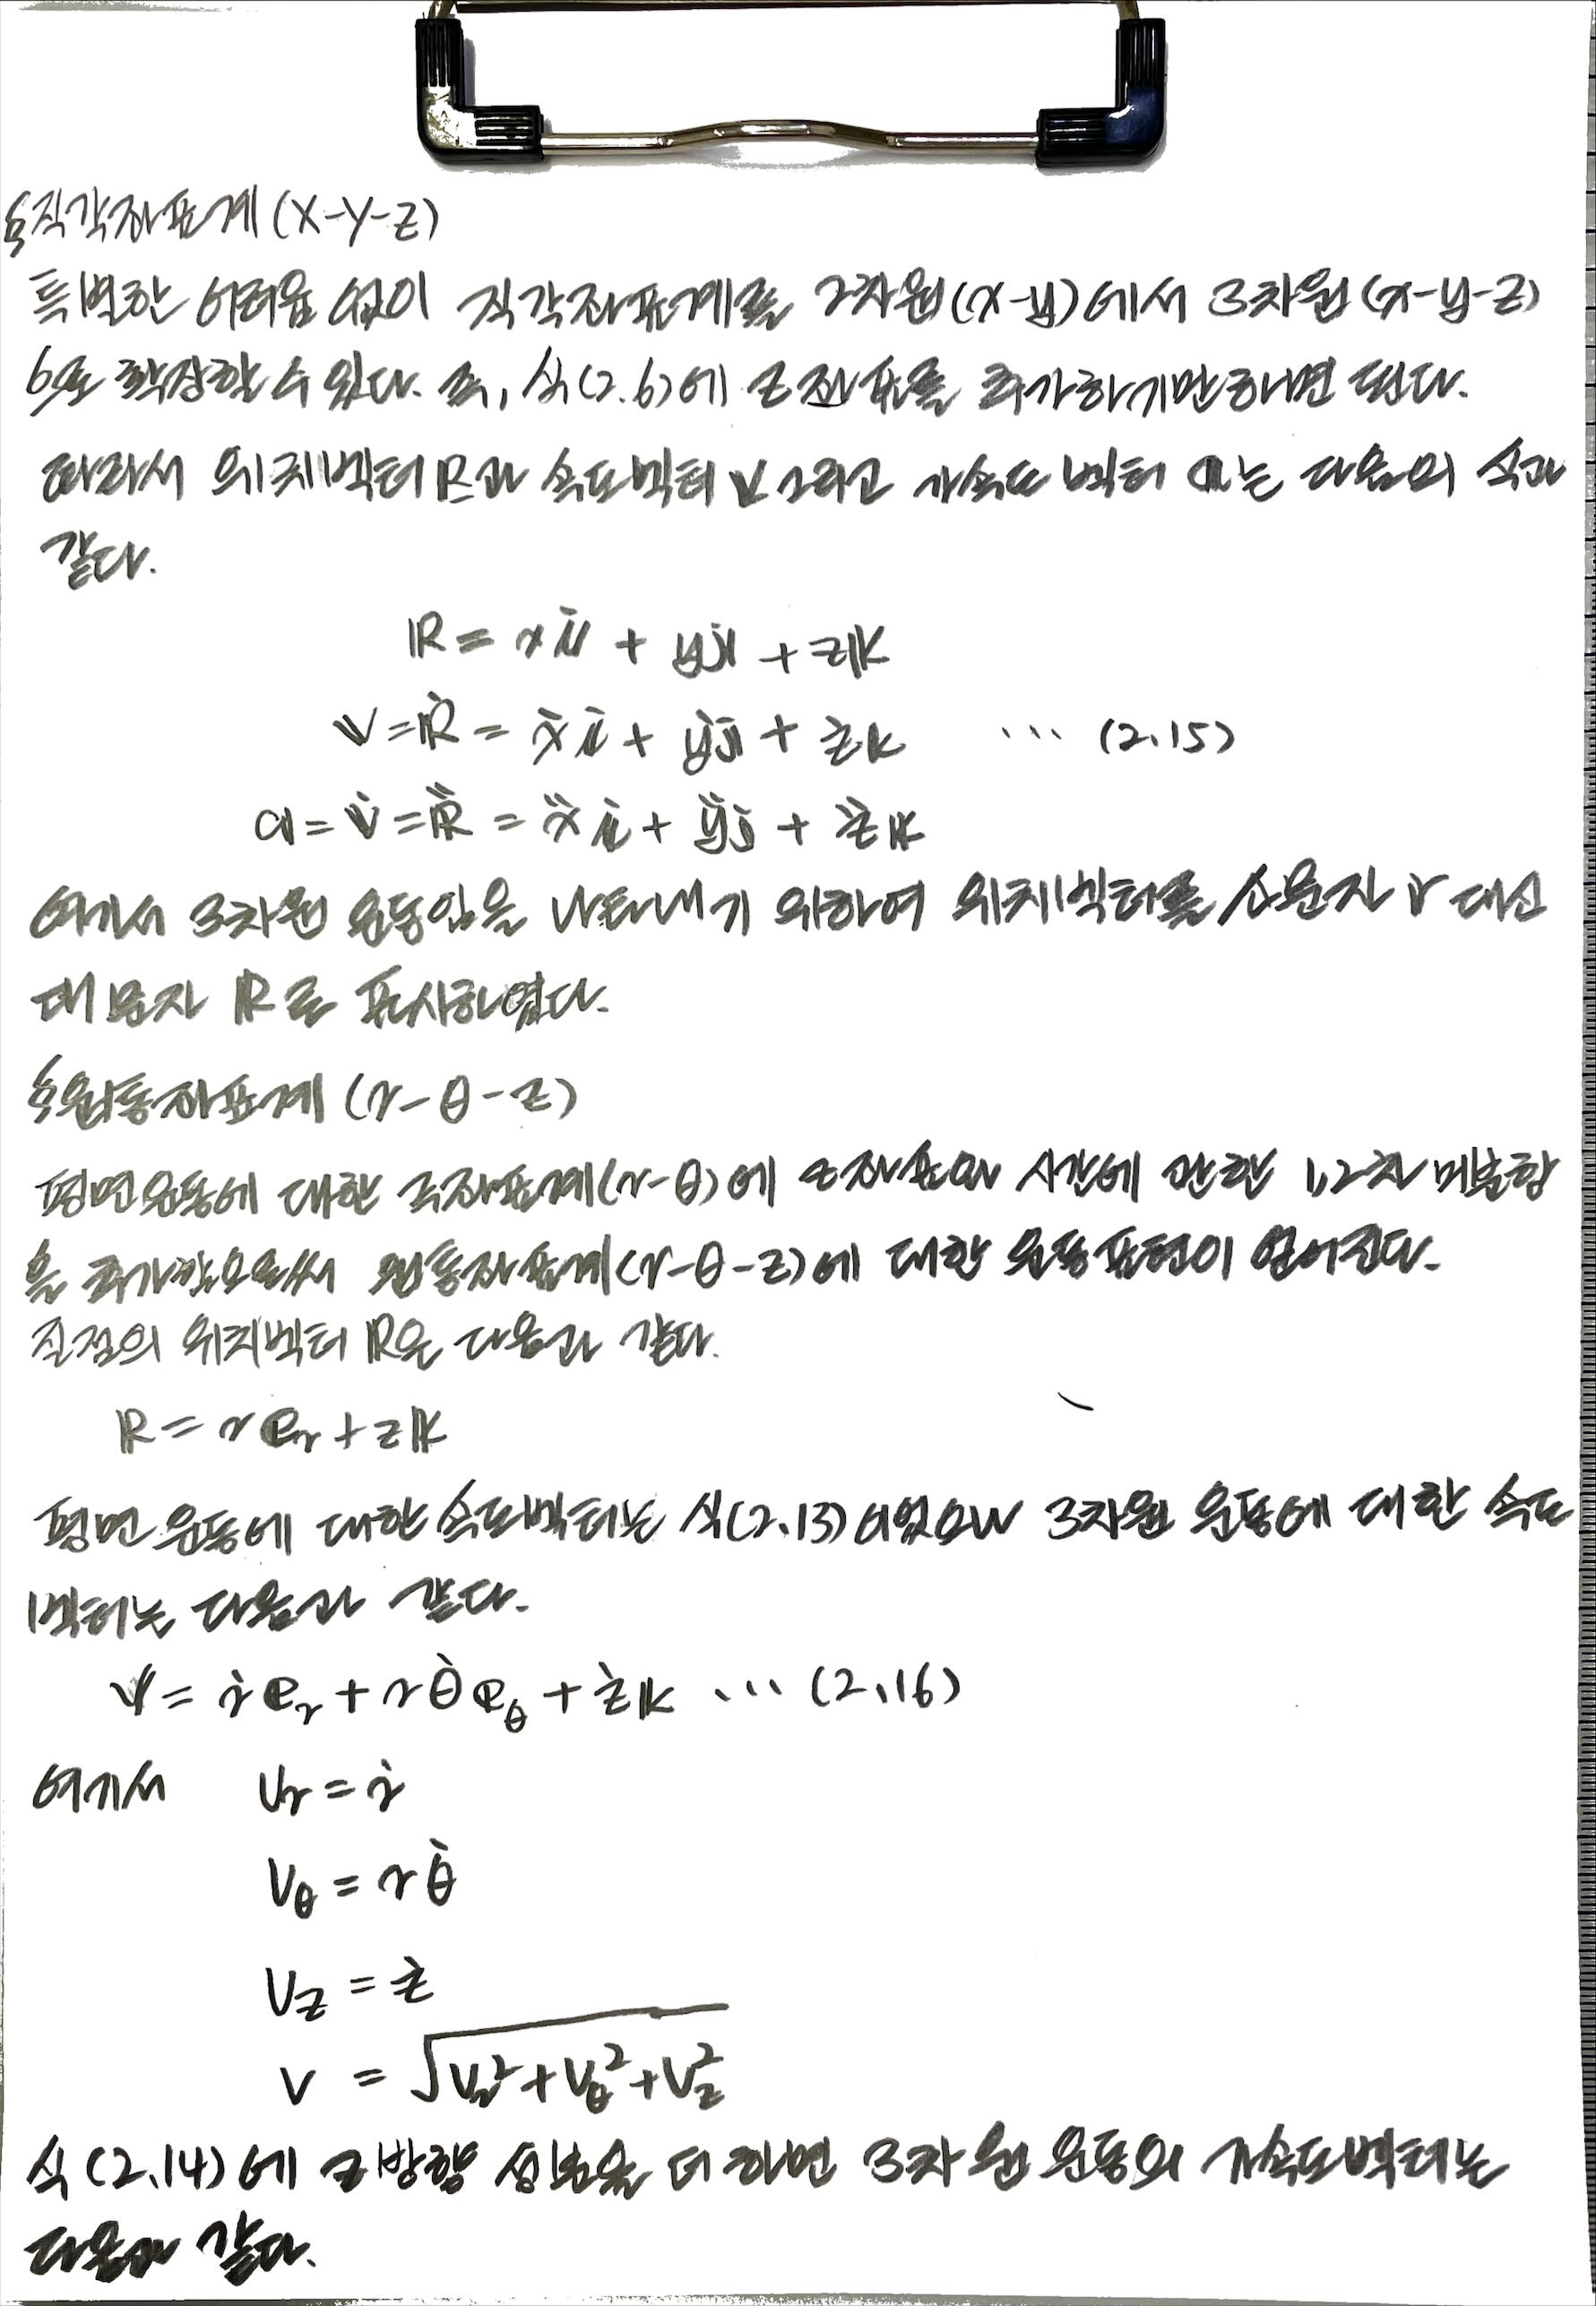 §직각좌표계(X-Y-Z)
특별한 어려움 없이 직각좌표계를 2차원(x-y)에서 3차원(x-y-z)
으로 확장할 수 있다. 즉, 식(2.6)에 z좌표를 추가하기만하면 된다.
따라서 위치벡터 R과 속도벡터 V 그리고 가속도 벡터 a는 다음의 식과
같다.
R = xi + yj + zk
V = Ṙ = ẋi + ẏj + żk ··· (2.15)
a = V̇ = R̈ = ẍi + ÿj + z̈k
여기서 3차원 운동임을 나타내기 위하여 위치벡터를 소문자 r 대신
대문자 R로 표시하였다.
§원통좌표계 (r-θ-z)
평면운동에 대한 극좌표계(r-θ)에 z좌표와 시간에 관한 1,2차 미분항
을 추가함으로써 원통좌표계(r-θ-z)에 대한 운동표현이 얻어진다.
질점의 위치벡터 R은 다음과 같다.
R = r e_r + zk
평면 운동에 대한 속도벡터는 식(2.13)이었으며 3차원 운동에 대한 속도
벡터는 다음과 같다.
V = ṙ e_r + r θ̇ e_θ + żk ··· (2.16)
여기서 V_r = ṙ
V_θ = r θ̇
V_z = ż
V = √(V_r² + V_θ² + V_z²)
식(2.14)에 z방향 성분을 더하면 3차원 운동의 가속도벡터는
다음과 같다.